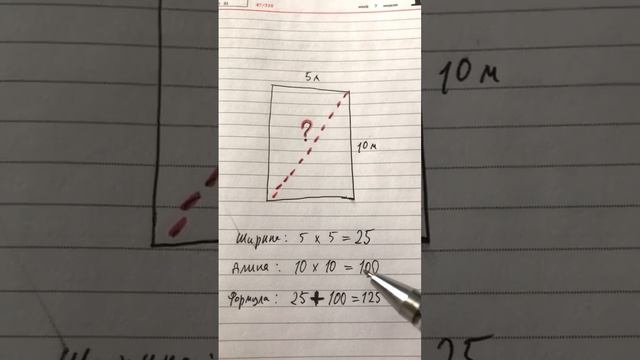 5 м
?
10 м
Ширина: 5 x 5 = 25
Длина: 10 x 10 = 100
Формула: 25 + 100 = 125
10 м
25